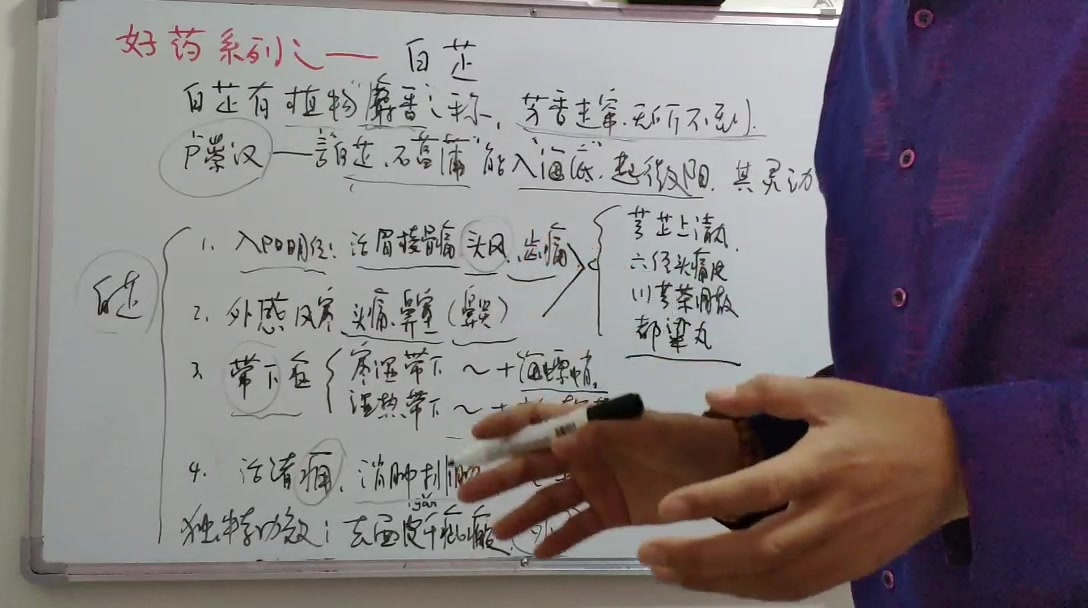 好药系列之一 白芷
白芷有"植物麝香"之称，芳香走窜.无所不到.
卢崇汉——言白芷.石菖蒲"能入海底.起微阳.其灵动
白芷
1. 入阳明经：治眉棱骨痛 头风.齿痛
2. 外感风寒 头痛.鼻塞（鼻炎）
芎芷上清丸.
六经头痛片
川芎茶调散
都梁丸
3. 带下症
寒湿带下 ~ + 海螵蛸.
湿热带下 ~ +
4. 治诸痛、消肿排脓
gǎn
独特功效：去面皮䵟疵瘢.